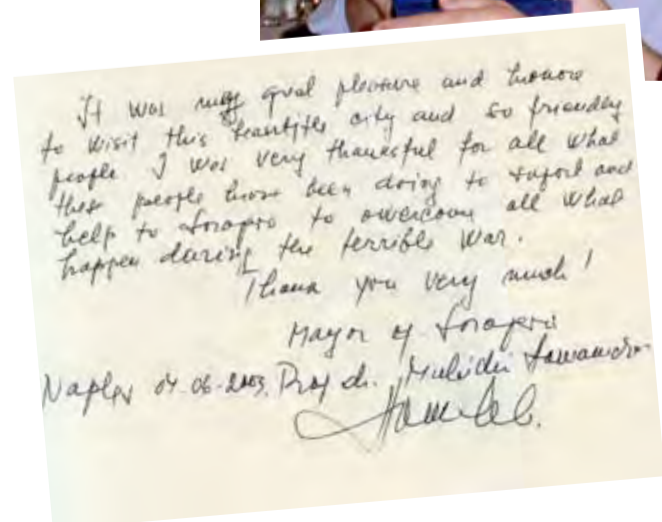 It was my great pleasure and honore
to visit this beautiful city and so friendly
people I was very thankesful for all what
this people have been doing to suport and
help to Sarajevo to owercome all what
happen during the terrible war.
Thank you very much!
Mayor of Sarajevo
Naples 04-06-2003. Prof dr. Muhidin